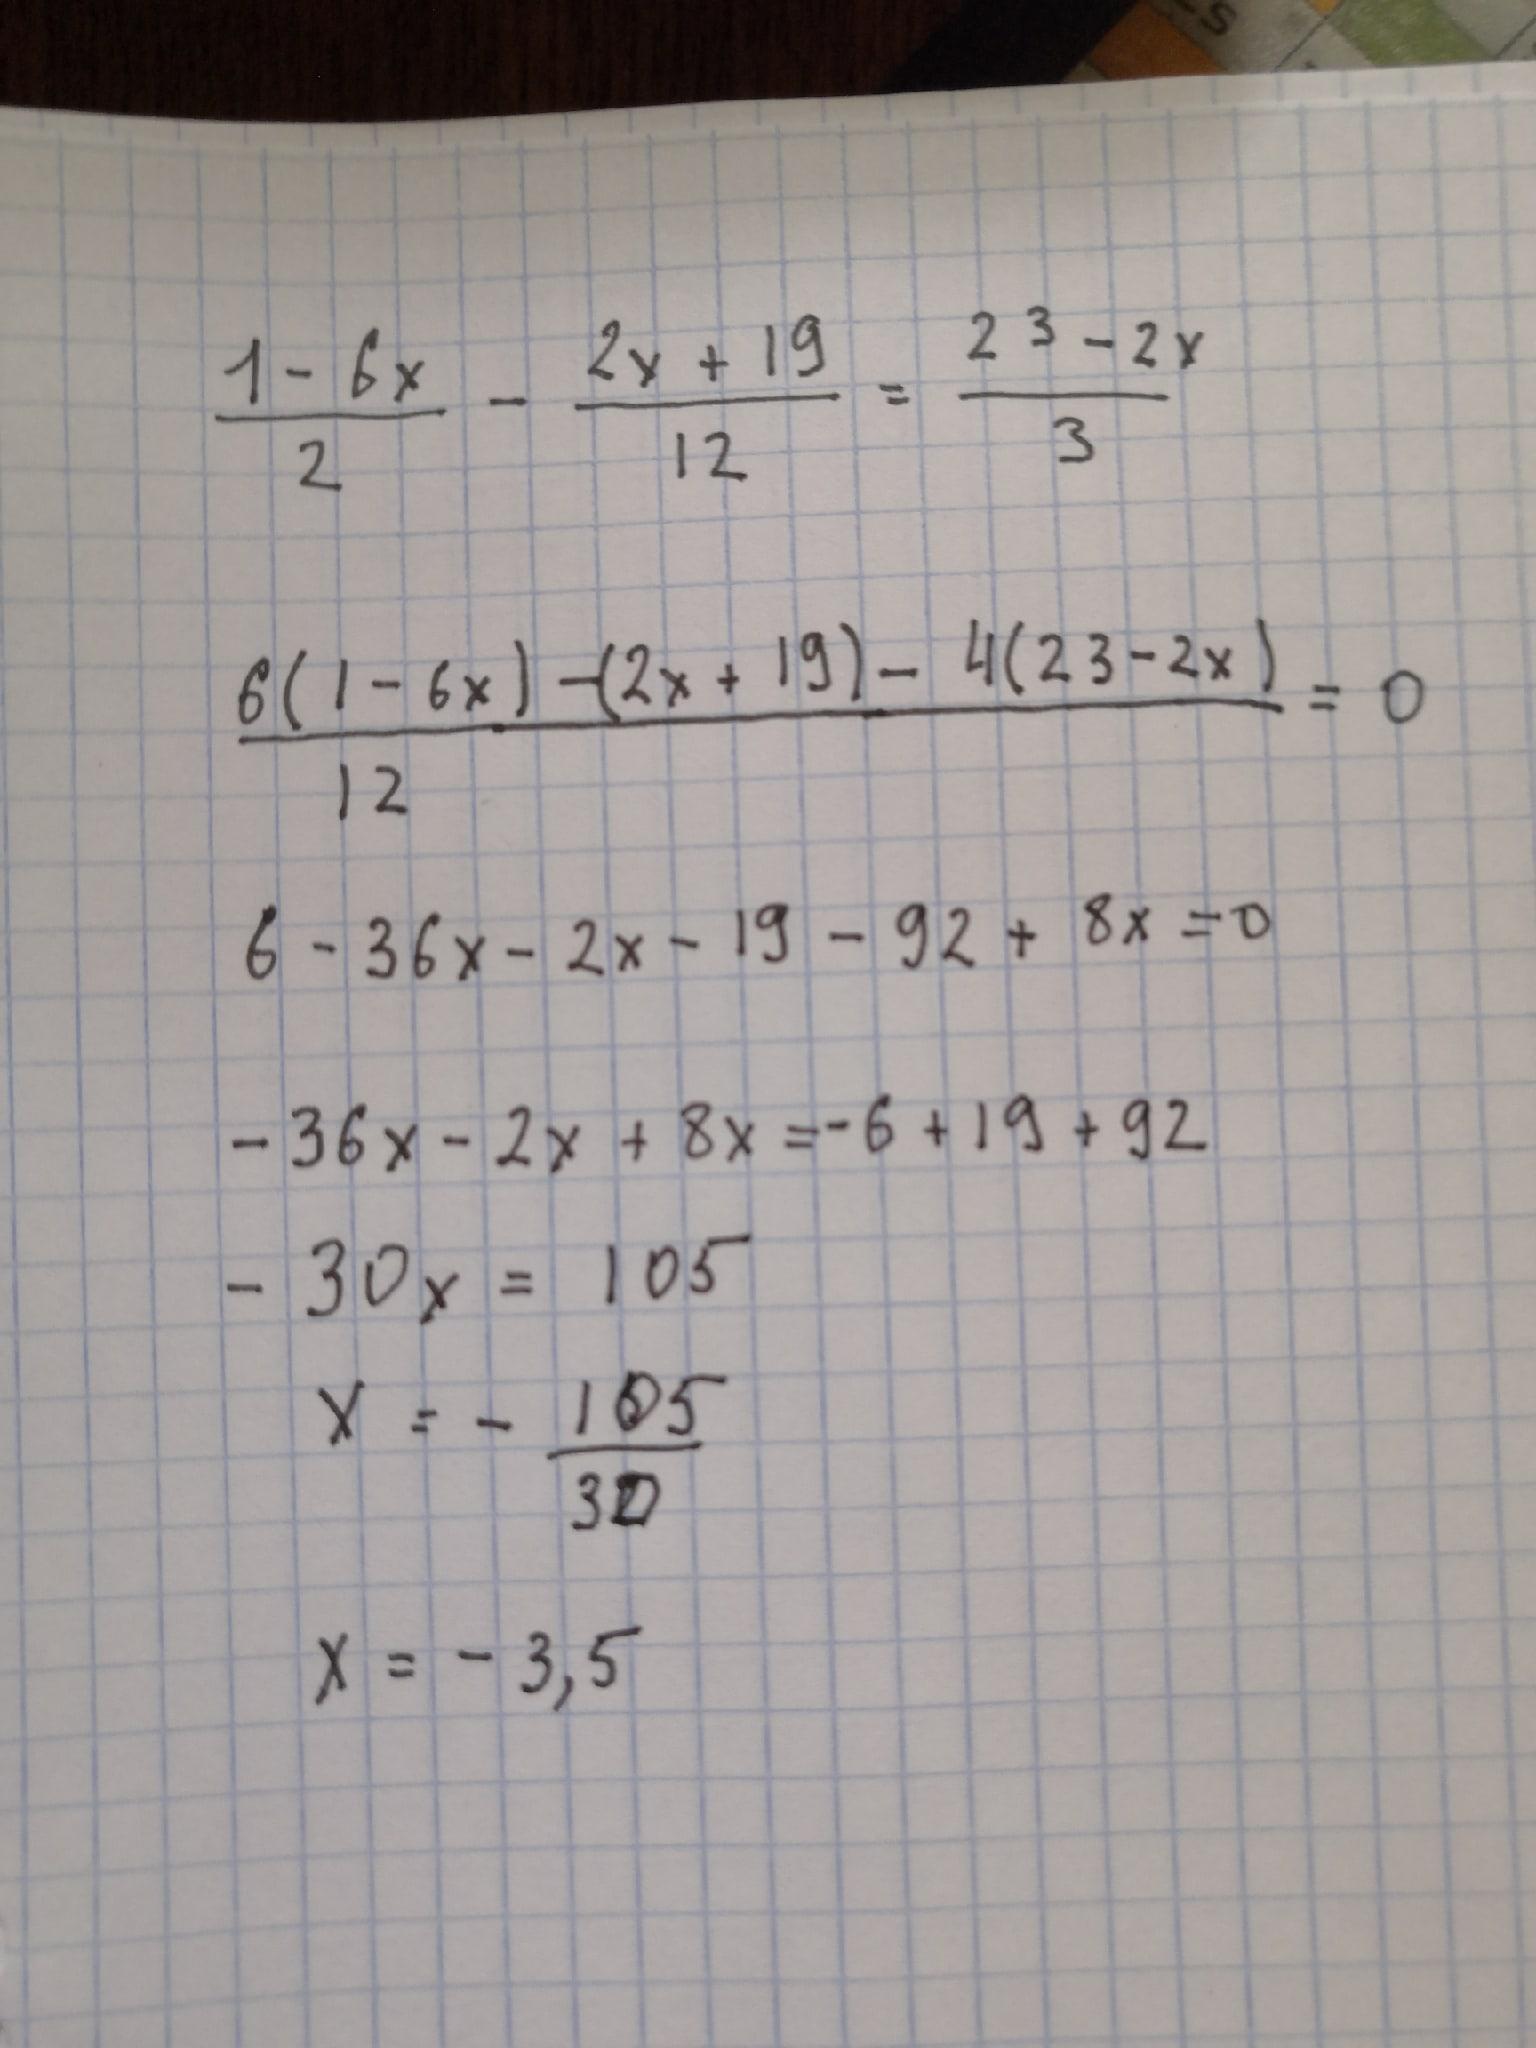 (1 - 6x)/2 - (2x + 19)/12 = (23 - 2x)/3
(6(1 - 6x) - (2x + 19) - 4(23 - 2x))/12 = 0
6 - 36x - 2x - 19 - 92 + 8x = 0
- 36x - 2x + 8x = - 6 + 19 + 92
- 30x = 105
x = - 105/30
x = - 3,5